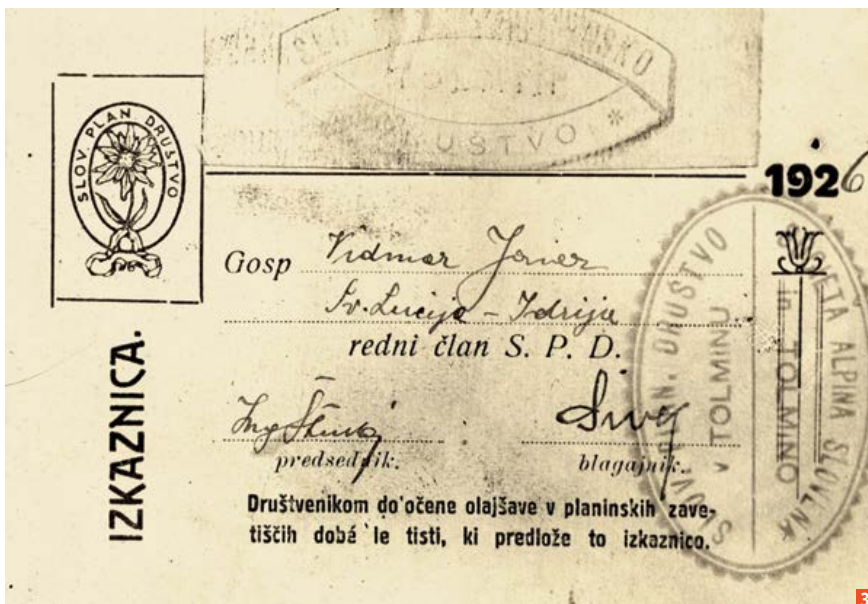 SLOV. PLAN DRUŠTVO
UŠTVO *
1926
Gosp Vidmar Javer
Sv. Lucija - Idrija
redni član S. P. D.
Ing
predsednik.
blagajnik.
Društvenikom do'očene olajšave v planinskih zave-
tiščih dobé le tisti, ki predlože to izkaznico.
IZKAZNICA.
SLOV. PLANIN. DRUŠTVO
V TOLMINU
SOCIETA ALPINA SLOVENA
in TOLMINO
3